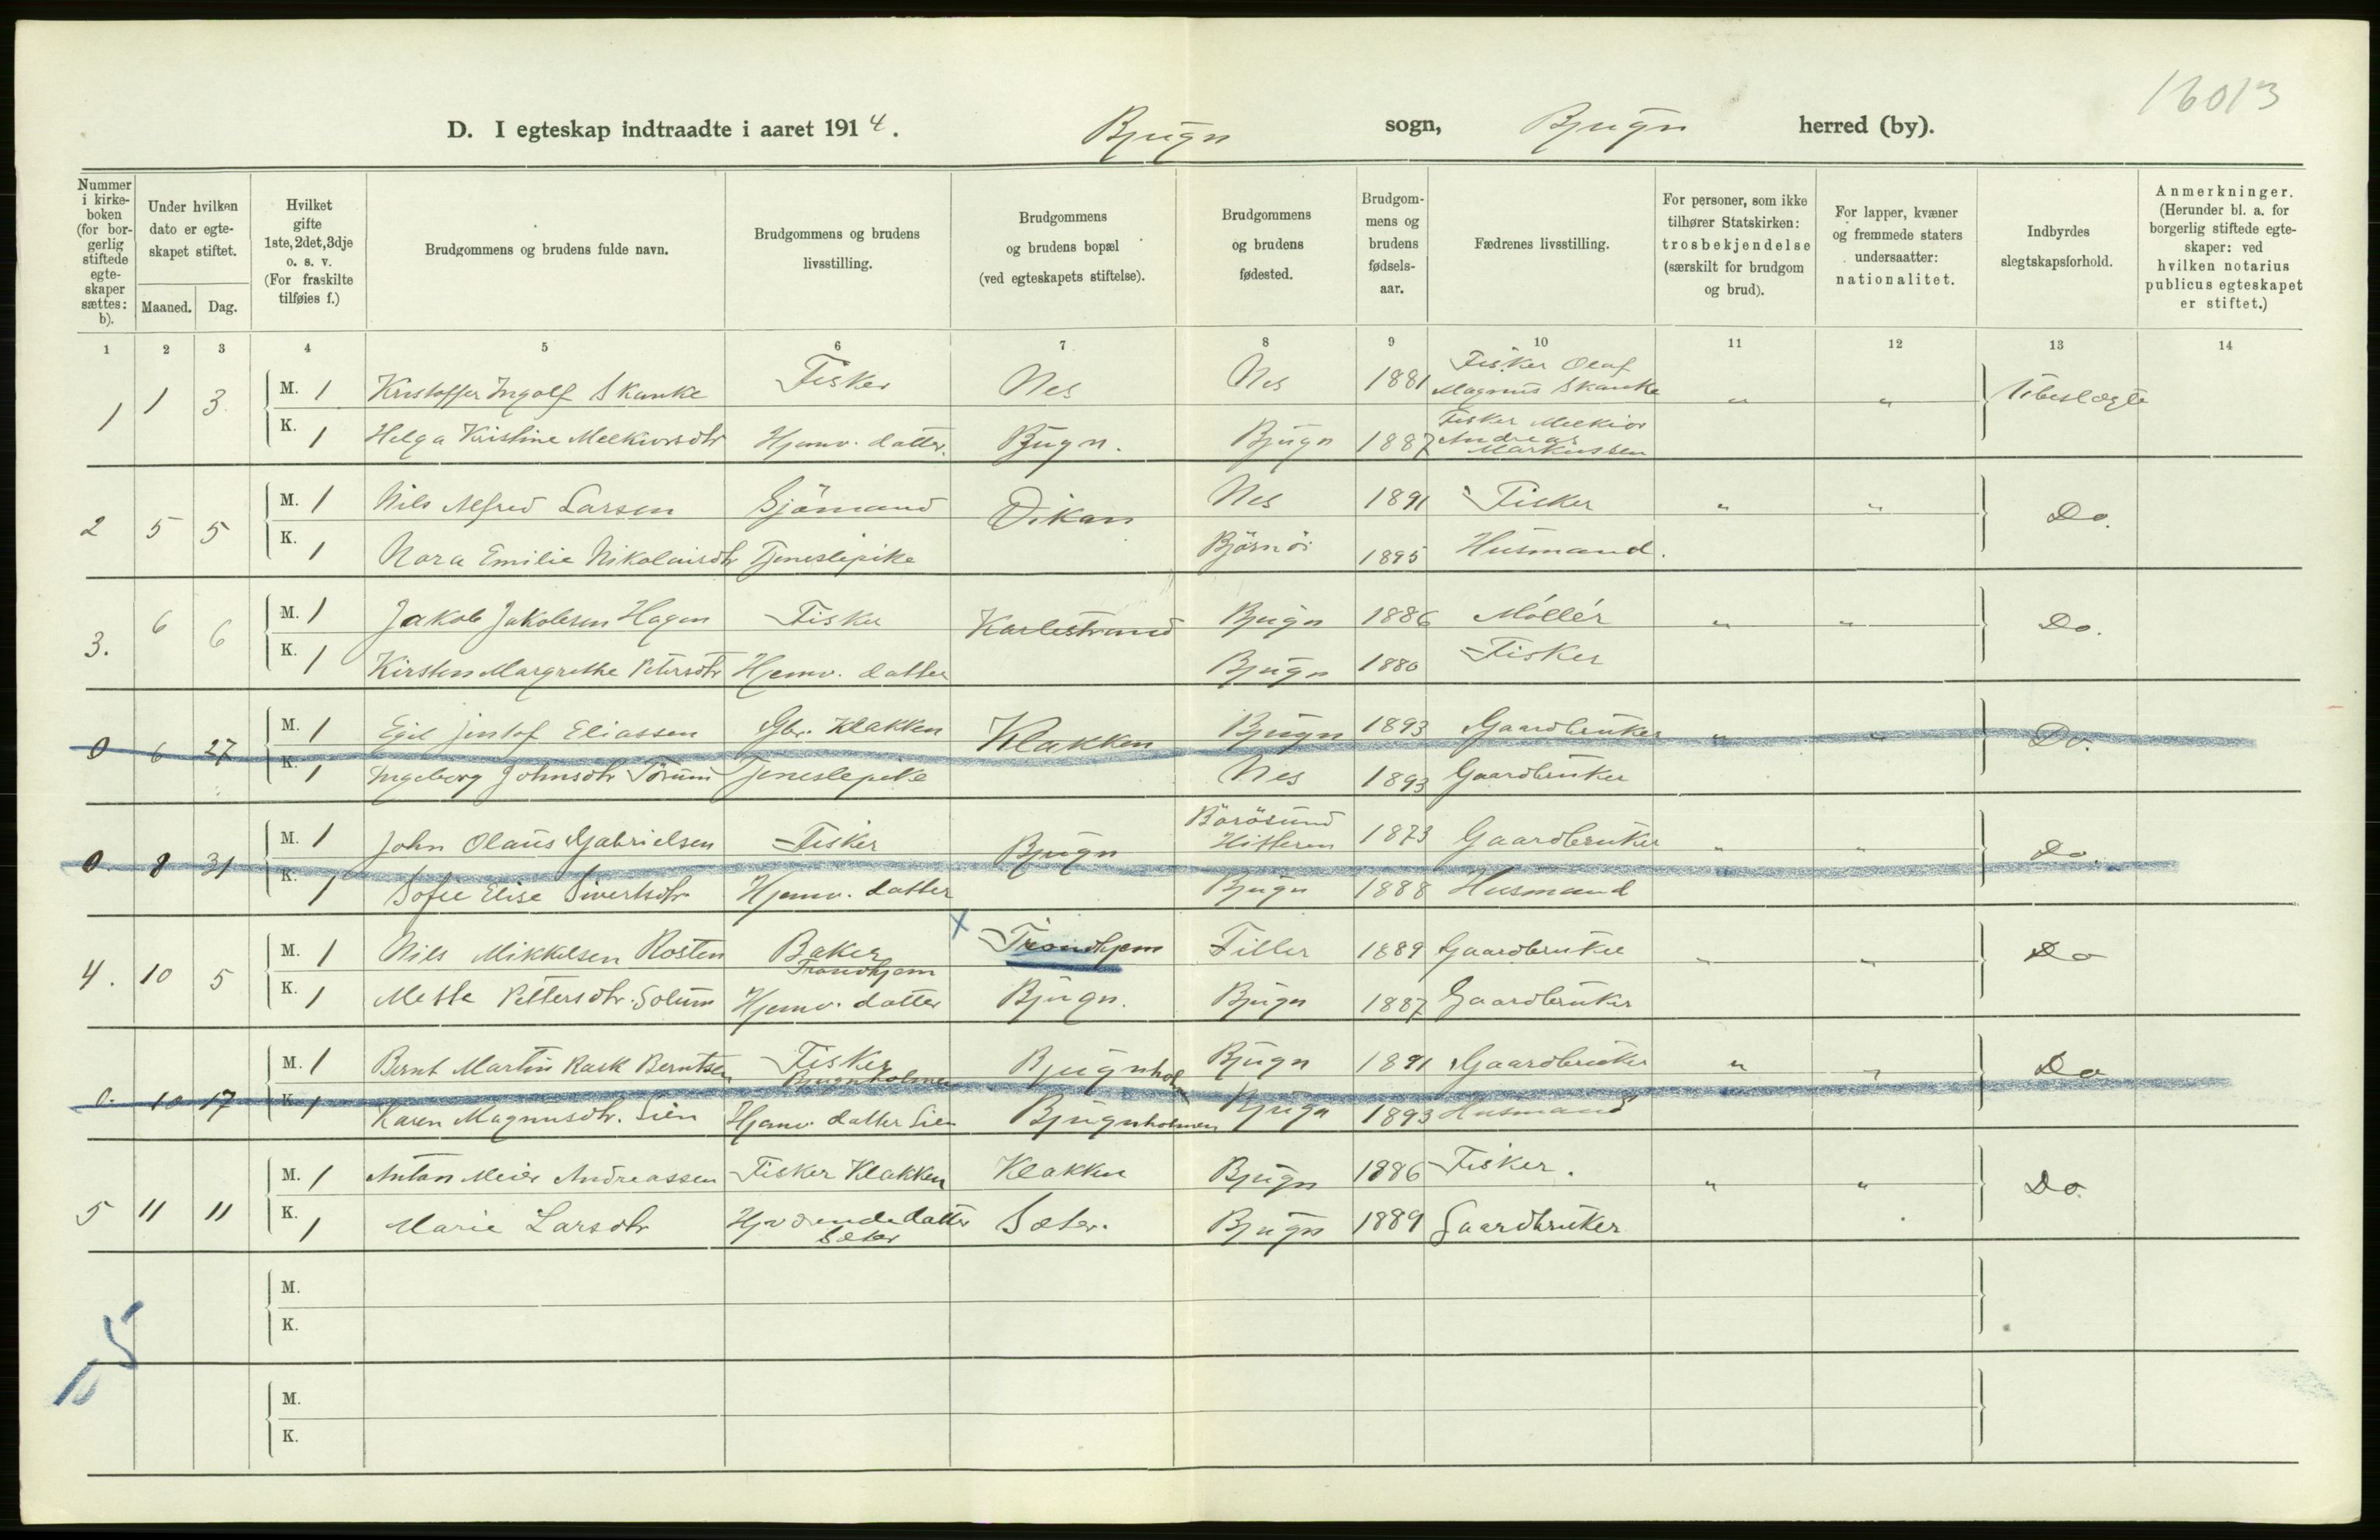 16013
D. I egteskap indtraadte i aaret 1914. Bjugn sogn, Bjugn herred (by).
Nummer i kirkeboken (for borgerlig stiftede egteskaper sættes: b).
Under hvilken dato er egteskapet stiftet.
Maaned. Dag.
Hvilket gifte 1ste, 2det, 3dje o. s. v. (For fraskilte tilføies f.)
Brudgommens og brudens fulde navn.
Brudgommens og brudens livsstilling.
Brudgommens og brudens bopæl (ved egteskapets stiftelse).
Brudgommens og brudens fødested.
Brudgommens og brudens fødselsaar.
Fædrenes livsstilling.
For personer, som ikke tilhører Statskirken: trosbekjendelse (særskilt for brudgom og brud).
For lapper, kvæner og fremmede staters undersaatter: nationalitet.
Indbyrdes slegtskapsforhold.
Anmerkninger. (Herunder bl. a. for borgerlig stiftede egteskaper: ved hvilken notarius publicus egteskapet er stiftet.)
1 2 3 4 5 6 7 8 9 10 11 12 13 14
1 1 3. M. 1 Kristoffer Ingolf Skanke Fisker Nes Nes 1881 Fisker Olaf Magnus Skanke " " Ubeslægte
K. 1 Helga Kristine Melkiorsdtr Hjemv. datter. Bjugn. Bjugn 1887 Fisker Melkior Andreas Markussen
2 5 5 M. 1 Nils Alfred Larsen Sjömand Dikan Nes 1891 Fisker " " Do.
K. 1 Nora Emilie Nikolaisdtr Tjenestepike Björnör 1895 Husmand.
3. 6 6 M. 1 Jakob Jakobsen Hagen Fisker Karlestrand Bjugn 1886 Möller " " Do.
K. 1 Kirsten Margrethe Petersdtr Hjemv. datter Bjugn 1880 Fisker
0 6 27 M. 1 Egil Eliassen Gbr. Klakken Klakken Bjugn 1893 Gaardbruker " " Do.
K. 1 Ingeborg Johnsdtr Tjenestepike Nes 1893 Gaardbruker
0. 8 31 M. 1 John Olaus Gabrielsen Fisker Bjugn Börösund Hitteren 1873 Gaardbruker " " Do.
K. 1 Sofie Elise Sivertsdtr Hjemv. datter Bjugn 1888 Husmand
4. 10 5 M. 1 Nils Mikkelsen Rosten Baker Trondhjem x Trondhjem Tiller 1889 Gaardbruker " " Do
K. 1 Mette Pettersdtr. Solum Hjemv. datter Bjugn. Bjugn 1887 Gaardbruker
0. 10 17 M. 1 Bernt Martin Rask Berntsen Fisker Bjugnholmen Bjugnholm Bjugn 1891 Gaardbruker " " Do
K. 1 Karen Magnusdtr. Lien Hjemv. datter Lien Bjugnholmen Bjugn 1893 Husmand
5 11 11 M. 1 Anton Meier Andreassen Fisker Klakken Klakken Bjugn 1886 Fisker. " " Do.
K. 1 Marie Larsdtr Hjv datter Sæter Sæter. Bjugn 1889 Gaardbruker
M.
K.
5
M.
K.